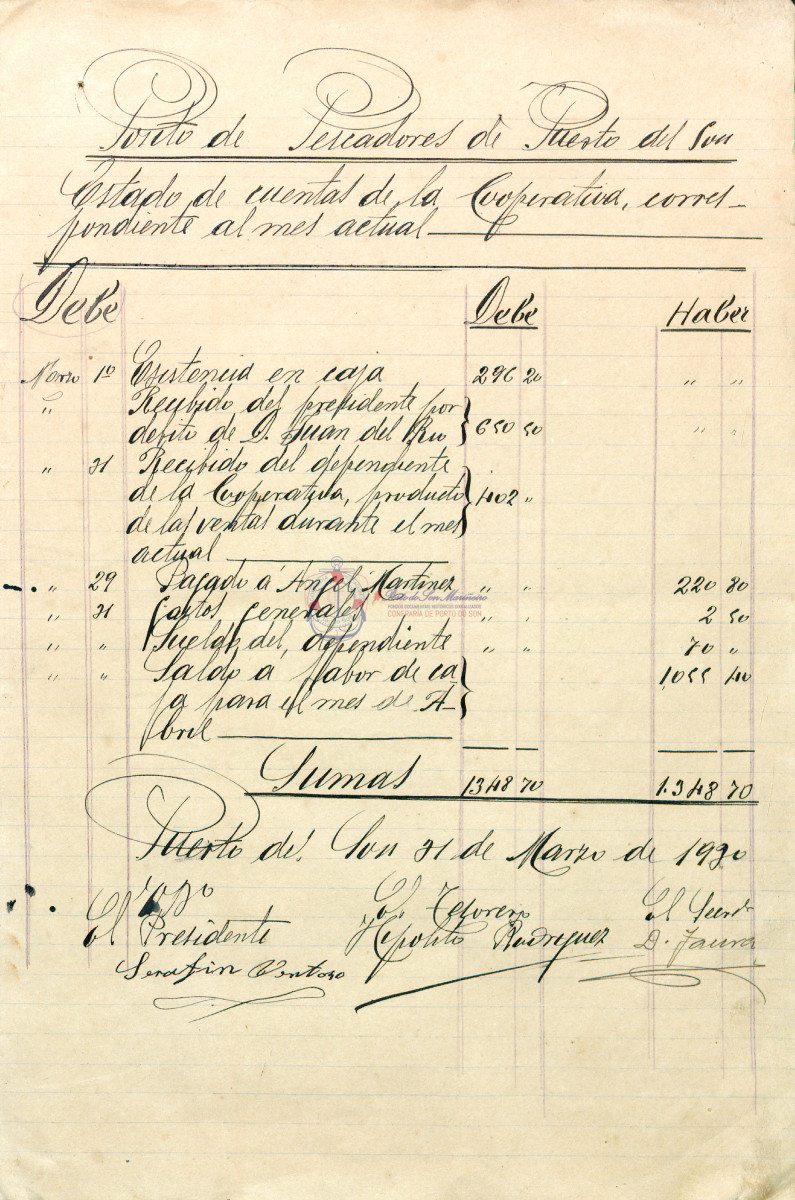 Posito de Pescadores de Puerto del Son
Estado de cuentas de la Cooperativa, corres-
pondiente al mes actual
Debe Debe Haber
Marzo 1º Existencia en caja 296 20 " "
" Recibido del presidente por
debito de D. Juan del Rio 650 50 " "
" 31 Recibido del dependiente
de la Cooperativa, producto 402 "
de las ventas durante el mes
actual
" 29 Pagado á Angel Martinez " " 220 80
" 31 Gastos generales " " 2 50
" " Sueldo del dependiente " " 70 "
" " Saldo a fabor de ca 1,055 40
ja para el mes de A-
bril
Sumas 1348 70 1.348 70
Porto do Son Mariñeiro
CONFRARIA DE PORTO DO SON
Puerto del Son 31 de Marzo de 1930
Vº Bº
El Presidente El Tesorero El Secret
Serafin Ventoso Hipolito Rodriguez